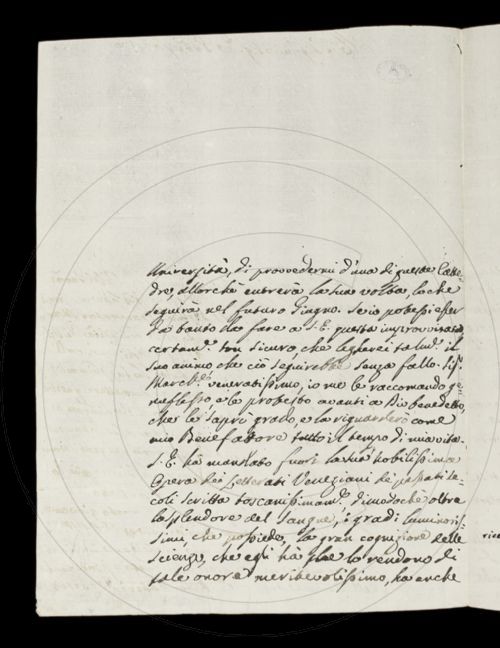 Università, di provvedermi d'una di queste Catte=
dre, allorchè entrerà la sua volta, lo che
seguirà nel futuro Giugno. Se io potessi esser
da tanto da fare a S. E. questa improvvisata
certam.e son sicuro che legherei talm.e il
suo animo che ciò seguirebbe senza fallo. Sig.r
March.e veneratissimo, io me le raccomando ge=
nuflesso e le protesto avanti a Dio benedetto,
che le saprò grado, e la riguarderò come
mio Benefattore tutto il tempo di mia vita.
S. E. ha mandato fuori la sua nobilissima
Opera de' Letterati Veneziani de' passati se=
coli scritta toscanissimam.e dimodochè oltre
lo splendore del sangue, i gradi luminosis=
simi che possiede, la gran cognizione delle
scienze, che egli ha lo rendono di
tale onore meritevolissimo, ha anche